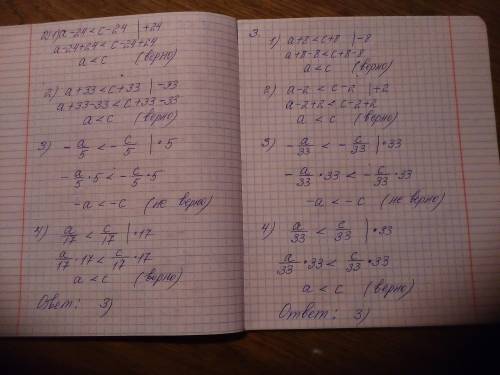 2. 1) a-24 < c-24 | +24
a-24+24 < c-24+24
a < c (верно)
2) a+33 < c+33 | -33
a+33-33 < c+33-33
a < c (верно)
3) -a/5 < -c/5 | •5
-a/5 •5 < -c/5 •5
-a < -c (не верно)
4) a/17 < c/17 | •17
a/17 •17 < c/17 •17
a < c (верно)
Ответ: 3)
3.
1) a+8 < c+8 | -8
a+8-8 < c+8-8
a < c (верно)
2) a-2 < c-2 | +2
a-2+2 < c-2+2
a < c (верно)
3) -a/33 < -c/33 | •33
-a/33 •33 < -c/33 •33
-a < -c (не верно)
4) a/33 < c/33 | •33
a/33 •33 < c/33 •33
a < c (верно)
Ответ: 3)